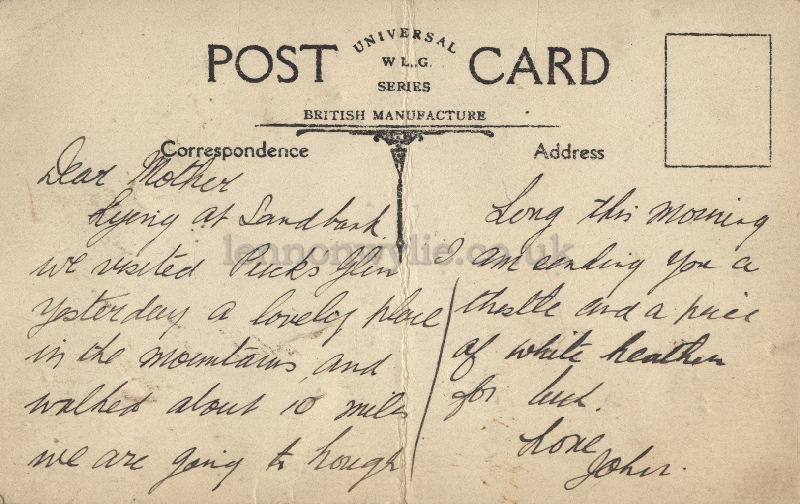 POST CARD
UNIVERSAL
W L. G.
SERIES
BRITISH MANUFACTURE
Correspondence
Address
Dear Mother
Lying at Sandbank
we visited Pucks Glen
yesterday a lovely place
in the mountains, and
walked about 10 miles
we are going to Lough
Long this morning
I am sending you a
thistle and a piece
of white heather
for luck.
Love
John.
lennonwylie.co.uk